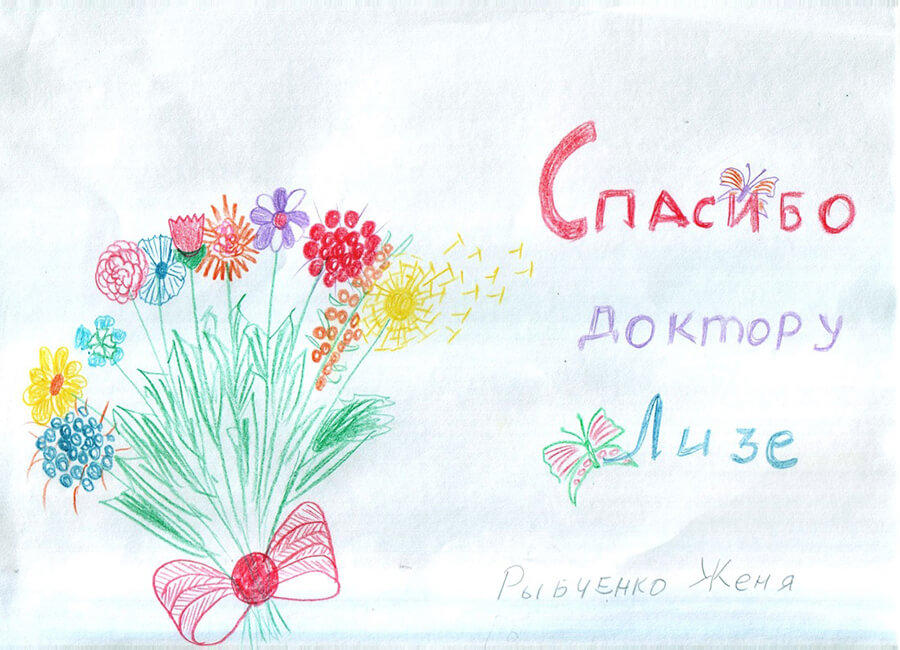 Спасибо
доктору
Лизе
Рыбченко Женя